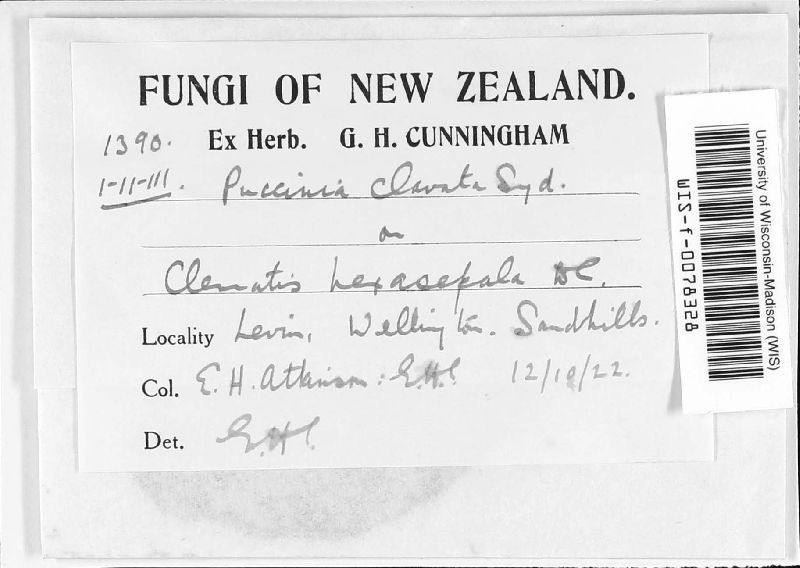 FUNGI OF NEW ZEALAND.
1390. Ex Herb. G. H. CUNNINGHAM
I-II-III. Puccinia clavata Syd.
on
Clematis hexasepala DC.
Locality Levin, Wellington. Sandhills.
Col. E. H. Atkinson: G.H.C. 12/10/22.
Det. G.H.C.
University of Wisconsin-Madison (WIS)
WIS-f-0078328